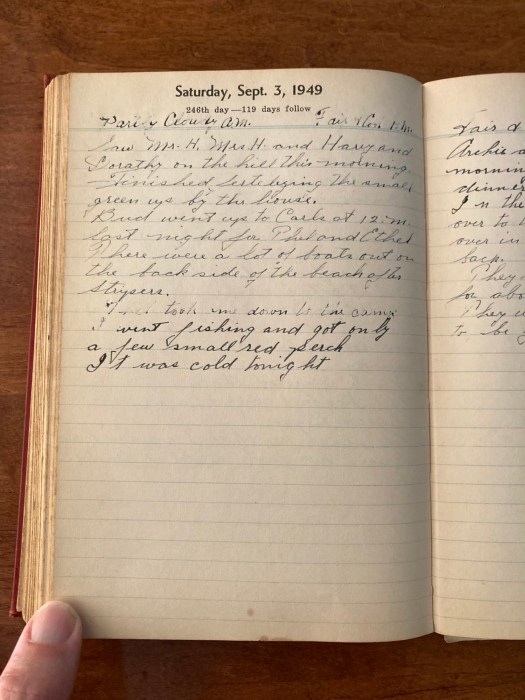 Saturday, Sept. 3, 1949
246th day—119 days follow
Partly Cloudy A.M. Fair & P.M.
Saw Mr. H, Mrs H. and Harry and
Dorathy on the hill this morning
Finished the small
green up by the house.
Bud went up to Carls at 12:m.
last night for Phil and Ethel
There were a lot of boats out on
the back side of the beach after
Strypers.
took me down to the
I went fishing and got only
a few small red perch
It was cold tonight
Fair &
Archie
mornin
dinner
In the
over to
over in
back.
They
for abo
They w
to be